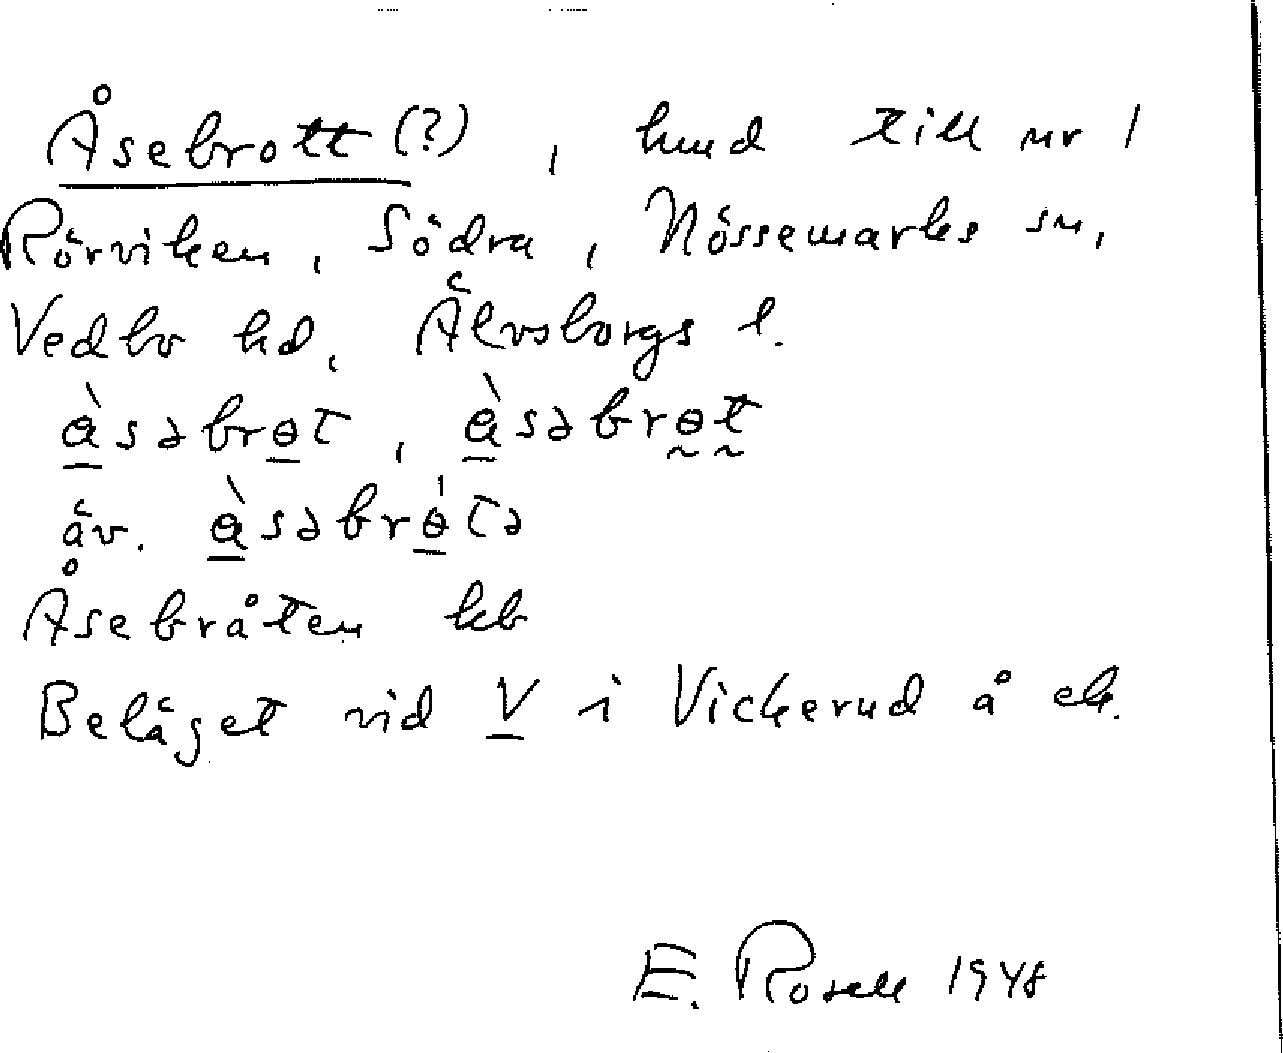 Åsebrott (?), hmd till nr 1
Rörviken, Södra, Nössemarks sn,
Vedbo hd, Älvsborgs l.
ɑ̀səbrɵt, ɑ̀səbrɵt
äv. ɑ̀səbrɵ́tə
Åsebråten kb
Beläget vid V i Vickerud å ek.
E. Rosell 1948